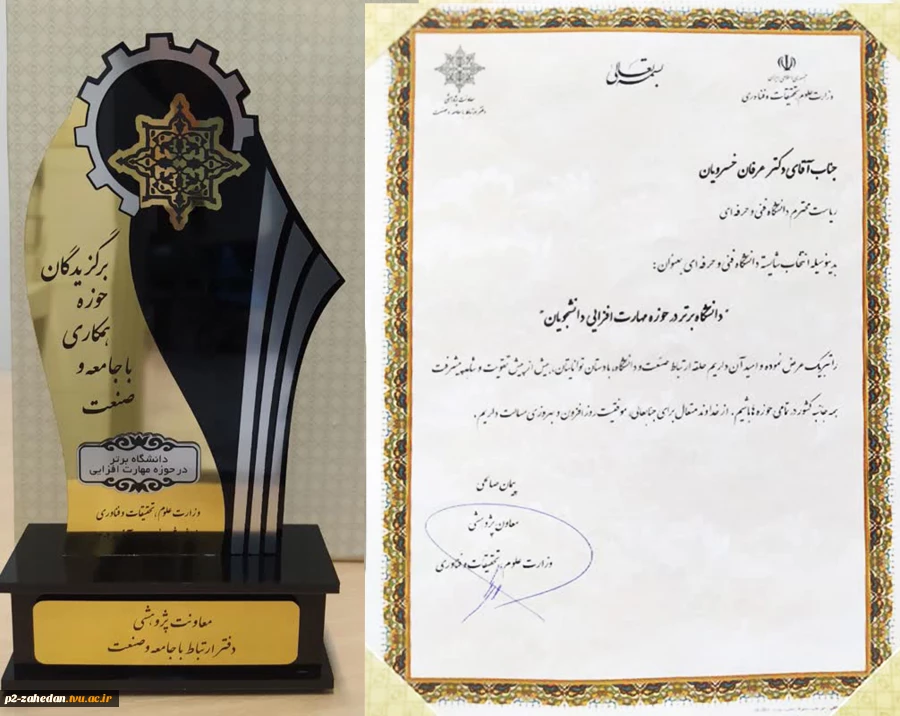 برگزیدگان
حوزه
همکاری
با جامعه و
صنعت
دانشگاه برتر
در حوزه مهارت افزایی
وزارت علوم، تحقیقات و فناوری
معاونت پژوهشی
دفتر ارتباط با جامعه و صنعت
p2-zahedan.tvu.ac.ir
بسمه تعالی
جمهوری اسلامی ایران
وزارت علوم، تحقیقات و فناوری
معاونت پژوهشی
دفتر ارتباط با جامعه و صنعت
جناب آقای دکتر عرفان خسرویان
ریاست محترم دانشگاه فنی و حرفه ای
بدینوسیله انتخاب شایسته دانشگاه فنی و حرفه ای بعنوان:
"دانشگاه برتر در حوزه مهارت افزایی دانشجویان"
را تبریک عرض نموده و امید آن داریم حلقه ارتباط صنعت و دانشگاه، با دستان توانایتان، بیش از پیش تقویت و شاهد پیشرفت
همه جانبه کشور در تمامی حوزه ها باشیم. از خداوند متعال برای جنابعالی، موفقیت روز افزون و بهروزی مسالت داریم.
پیمان صالحی
معاون پژوهشی
وزارت علوم، تحقیقات و فناوری